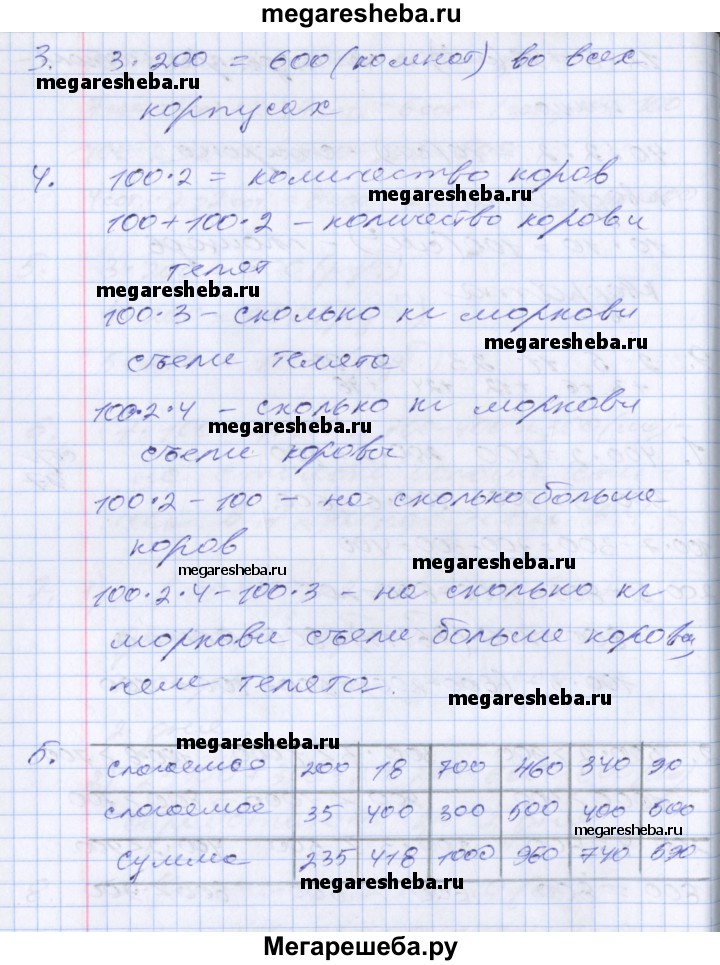 megaresheba.ru
3. 3·200 = 600 (комнат) во всех
megaresheba.ru
корпусах
4. 100·2 = количество коров
megaresheba.ru
100+100·2 – количество коров и
телят
megaresheba.ru
100·3 – сколько кг моркови
megaresheba.ru
съели телята
100·2·4 – сколько кг моркови
megaresheba.ru
съели коровы
100·2 – 100 – на сколько больше
коров
megaresheba.ru
megaresheba.ru
100·2·4–100·3 – на сколько кг
моркови съели больше коровы,
чем телята.
megaresheba.ru
megaresheba.ru
5. слагаемое 200 18 700 460 340 90
слагаемое 35 400 300 500 400 500
megaresheba.ru
Сумма 235 418 1000 960 740 590
megaresheba.ru
Мегарешеба.ру